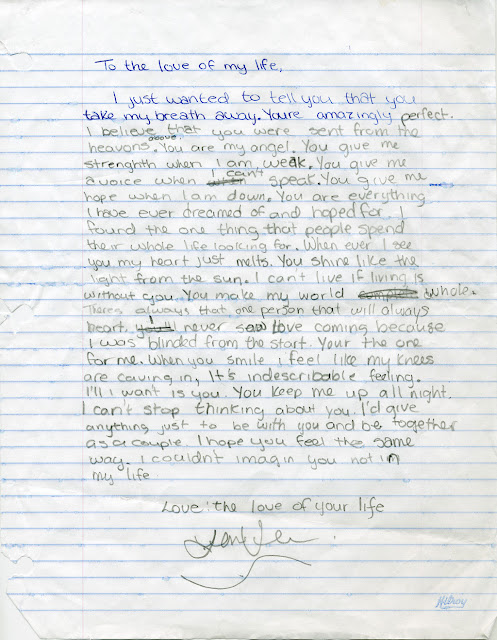 To the love of my life,
I just wanted to tell you that you
take my breath away. Youre amazingly perfect.
I believe that you were sent from the
heavons above. You are my angel. You give me
strenghth when I am weak. You give me
a voice when I can't speak. You give me
hope when I am down. You are everything
I have ever dreamed of and hoped for. I
found the one thing that people spend
their whole life looking for. When ever I see
you my heart just melts. You shine like the
light from the sun. I can't live if living is
without you. You make my world whole.
Theres always that one person that will always
heart. I never saw love coming because
I was blinded from the start. Your the one
for me. When you smile i feel like my knees
are caving in, It's indescribable feeling.
I'll I want is you. You keep me up all night.
I can't stop thinking about you. I'd give
anything just to be with you and be together
as a couple. I hope you feel the same
way. I couldn't imagin you not in
my life
Love: the love of your life
Hilroy